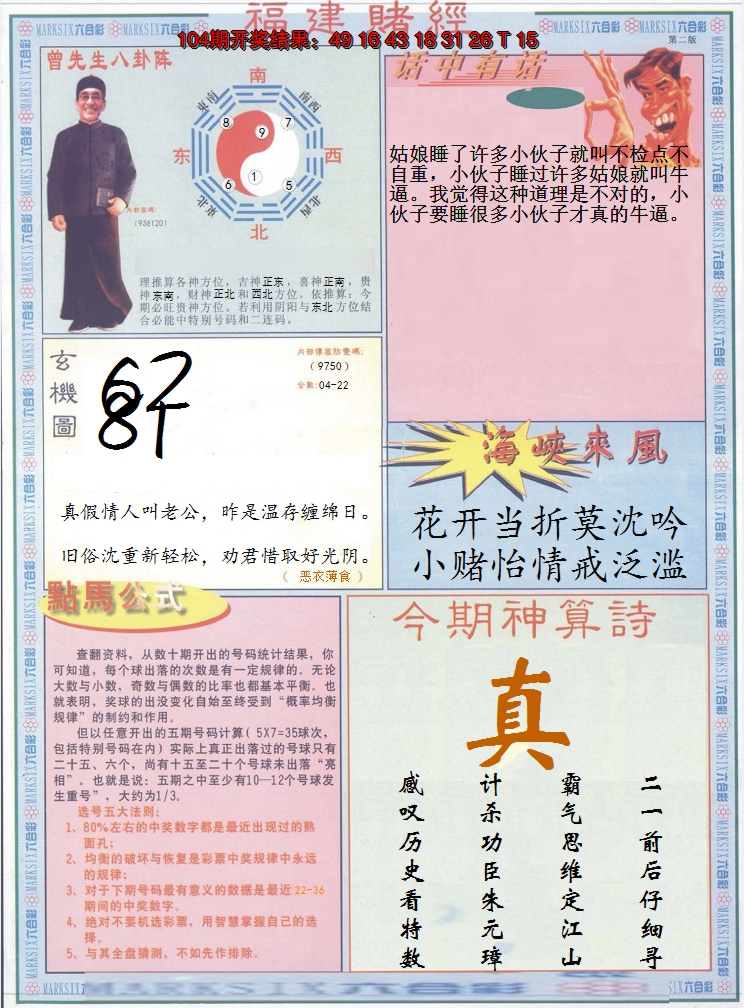 福建賭經
104期开奖结果：49 16 43 18 31 26 T 15
MARKSIX六合彩
第二版
曾先生八卦阵
南
東南
南西
8
7
9
东
西
6
1
5
東北
北西
北
(936120)
理推算各神方位，吉神正东，喜神正南，贵
神东南，财神正北和西北方位。依推算：今
期必旺贵神方位。若利用阴阳与东北方位结
合必能中特别号码和二连码。
话中有话
姑娘睡了许多小伙子就叫不检点不
自重，小伙子睡过许多姑娘就叫牛
逼。我觉得这种道理是不对的，小
伙子要睡很多小伙子才真的牛逼。
玄機圖
（9750）
合数:04-22
真假情人叫老公，昨是温存缠绵日。
旧俗沈重新轻松，劝君惜取好光阴。
（ 恶衣薄食 ）
海峽來風
花开当折莫沈吟
小赌怡情戒泛滥
點馬公式
查翻资料，从数十期开出的号码统计结果，你
可知道，每个球出落的次数是有一定规律的。无论
大数与小数，奇数与偶数的比率也都基本平衡。也
就表明，奖球的出没变化自始至终受到“概率均衡
规律”的制约和作用。
但以任意开出的五期号码计算( 5X7=35球次，
包括特别号码在内) 实际上真正出落过的号球只有
二十五、六个，尚有十五至二十个号球未出落“亮
相”。也就是说：五期之中至少有10—12个号球发
生重号”，大约为1/3。
选号五大法则：
1、80%左右的中奖数字都是最近出现过的熟
面孔；
2、均衡的破坏与恢复是彩票中奖规律中永远
的规律；
3、对于下期号码最有意义的数据是最近22-36
期间的中奖数字。
4、绝对不要机选彩票，用智慧掌握自己的选
择。
5、与其全盘猜测，不如先作排除。
今期神算詩
真
二一前后仔细寻
霸气思维定江山
计杀功臣朱元璋
感叹历史看特数